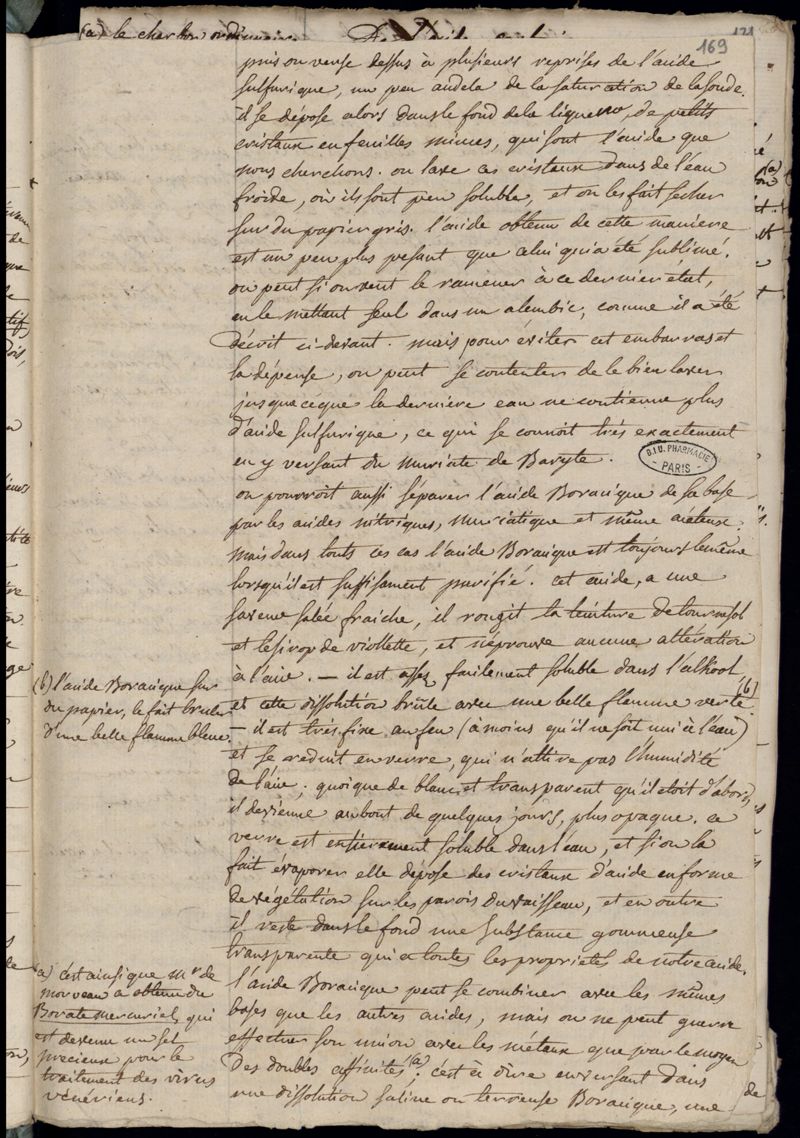 (a) le charbon ordinaire
169
121
puis on verse dessus à plusieurs reprises de l'acide
sulfurique, un peu audela de la saturation de la soude.
il se dépose alors dans le fond de la liqueur, de petits
cristaux en feuilles minces, qui sont l'acide que
nous cherchons. on lave ces cristaux dans de l'eau
froide, où ils sont peu soluble, et on les fait secher
sur du papier gris. l'acide obtenu de cette maniere
est un peu plus pesant que celui qui a été sublimé.
on peut si on veut le ramener à ce dernier état,
en le mettant seul dans un alembic, comme il a été
décrit ci-devant. mais pour éviter cet embarras et
la dépense, on peut se contenter de le bien laver
jusqueceque la derniere eau ne contienne plus
d'acide sulfurique, ce qui se connoit très exactement
en y versant du muriate de Baryte.
B.I.U. PHARMACIE
PARIS
on pourroit aussi séparer l'acide Boracique de sa base
par les acides nitriques, muriatique et même acéteux.
mais dans touts ces cas l'acide Boracique est toujours le même
lorsqu'il est suffisament purifié. cet acide, a une
saveur salée fraiche, il rougit la teinture de tournesol
et le sirop de viollette, et n'éprouve aucune altération
à l'air. — il est assez facilement soluble dans l'alkool
et cette dissolution brûle avec une belle flamme verte (b).
— il est très fixe au feu (à moins qu'il ne soit uni à l'eau)
et se reduit en verre, qui n'attire pas l'humidité
de l'air, quoique de blanc et transparent qu'il étoit d'abord,
il devienne au bout de quelques jours, plus opaque. ce
verre est entierement soluble dans l'eau, et si on la
fait évaporer elle dépose des cristaux d'acide en forme
de végétation sur les parois du vaisseau, et en outre
il reste dans le fond une substance gommeuse
transparente qui a toutes les propriétés de notre acide.
l'acide Boracique peut se combiner avec les mêmes
bases que les autres acides, mais on ne peut guerre
effectuer son union avec les metaux que par le moyen
des doubles affinités (a); c'est à dire en versant dans
une dissolution saline ou terreuse Boracique, une
de
(b) l'acide Boracique sur
du papier, le fait bruler
d'une belle flamme bleue.
(a) c'est ainsi que Mr de
morveau a obtenu du
Borate mercuriel, qui
est devenu un sel
precieux pour le
traitement des virus
vénériens.